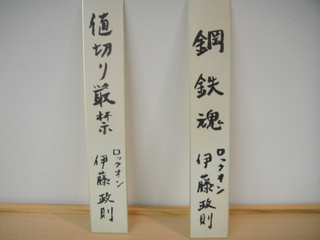 鋼鉄魂
ロックオン
伊藤政則
値切り厳禁
ロックオン
伊藤政則